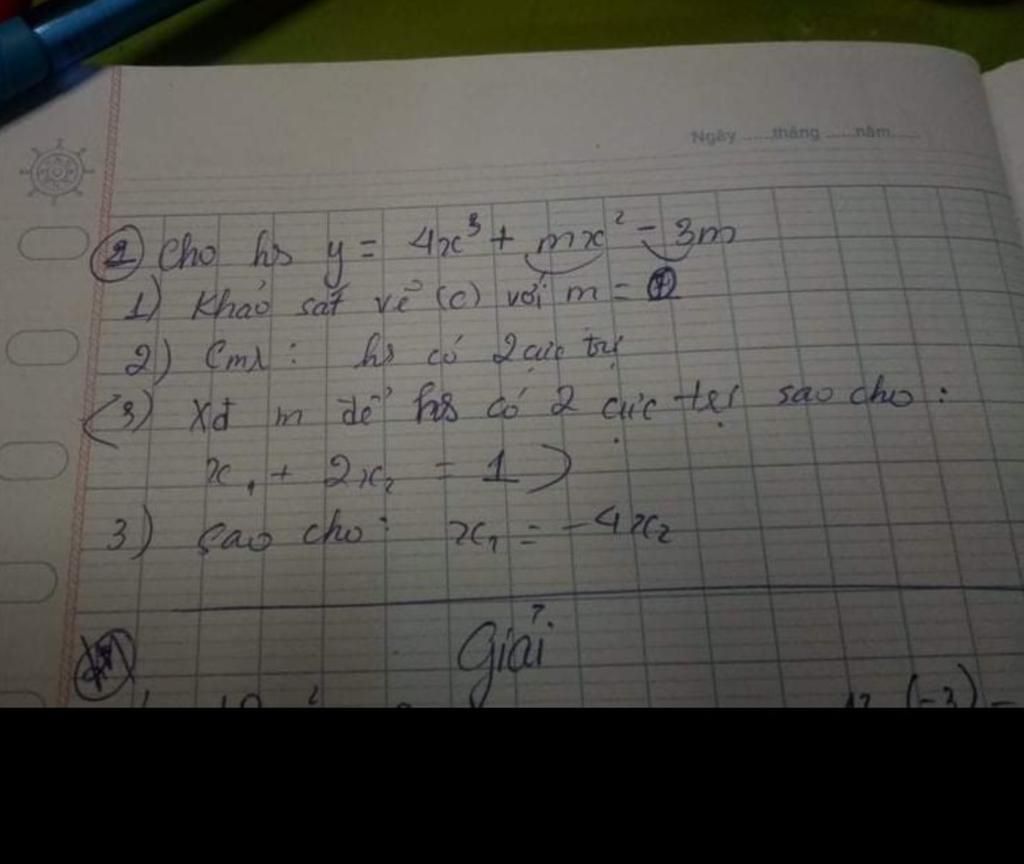 Ngày ......tháng ......năm......
② Cho hs y = 4x³ + mx² - 3m
1) Khảo sát vẽ (c) với m =
2) Cmr : hs có 2 cực trị
(3) Xđ m để hs có 2 cực trị sao cho :
x₁ + 2x₂ = 1 )
3) Sao cho : x₁ = -4x₂
Giải
(-3)